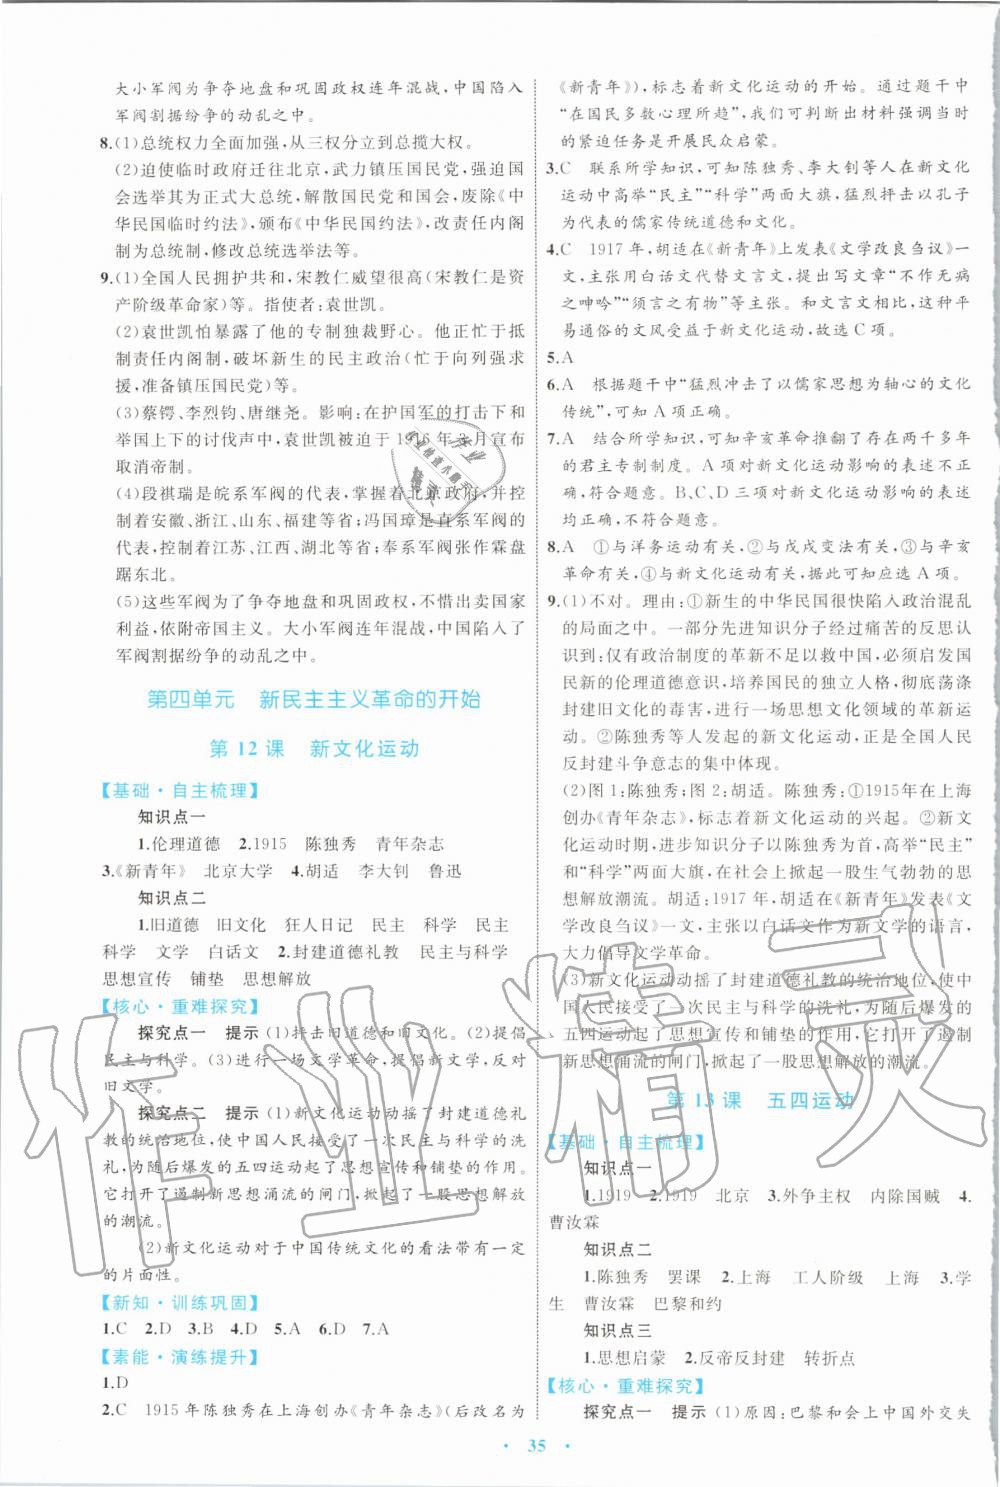 大小军阀为争夺地盘和巩固政权连年混战,中国陷入
军阀割据纷争的动乱之中。
8.(1)总统权力全面加强,从三权分立到总揽大权。
(2)迫使临时政府迁往北京,武力镇压国民党,强迫国
会选举其为正式大总统,解散国民党和国会,废除《中
华民国临时约法》,颁布《中华民国约法》,改责任内阁
制为总统制,修改总统选举法等。
9.(1)全国人民拥护共和,宋教仁威望很高(宋教仁是资
产阶级革命家)等。指使者:袁世凯。
(2)袁世凯怕暴露了他的专制独裁野心。他正忙于抵
制责任内阁制,破坏新生的民主政治(忙于向列强求
援,准备镇压国民党)等。
(3)蔡锷、李烈钧、唐继尧。影响:在护国军的打击下和
举国上下的讨伐声中,袁世凯被迫于1916年3月宣布
取消帝制。
(4)段祺瑞是皖系军阀的代表,掌握着北京政府,并控
制着安徽、浙江、山东、福建等省;冯国璋是直系军阀的
代表,控制着江苏、江西、湖北等省;奉系军阀张作霖盘
踞东北。
(5)这些军阀为了争夺地盘和巩固政权,不惜出卖国家
利益,依附帝国主义。大小军阀连年混战,中国陷入了
军阀割据纷争的动乱之中。
第四单元 新民主主义革命的开始
第12课 新文化运动
【基础·自主梳理】
知识点一
1.伦理道德 2.1915 陈独秀 青年杂志
3.《新青年》 北京大学 4.胡适 李大钊 鲁迅
知识点二
1.旧道德 旧文化 狂人日记 民主 科学 民主
科学 文学 白话文 2.封建道德礼教 民主与科学
思想宣传 铺垫 思想解放
【核心·重难探究】
探究点一 提示 (1)抨击旧道德和旧文化。(2)提倡
民主与科学。(3)进行一场文学革命,提倡新文学,反对
旧文学。
探究点二 提示 (1)新文化运动动摇了封建道德礼
教的统治地位,使中国人民接受了一次民主与科学的洗
礼,为随后爆发的五四运动起了思想宣传和铺垫的作用。
它打开了遏制新思想涌流的闸门,掀起了一股思想解放的
的潮流。
(2)新文化运动对于中国传统文化的看法带有一定
的片面性。
【新知·训练巩固】
1.C 2.D 3.B 4.D 5.A 6.D 7.A
【素能·演练提升】
1.D
2.C 1915年陈独秀在上海创办《青年杂志》(后改名为
《新青年》),标志着新文化运动的开始。通过题干中
“在国民多数心理所趋”,我们可判断出材料强调当时
的紧迫任务是开展民众启蒙。
3.C 联系所学知识,可知陈独秀、李大钊等人在新文化
运动中高举“民主”“科学”两面大旗,猛烈抨击以孔子
为代表的儒家传统道德和文化。
4.C 1917年,胡适在《新青年》上发表《文学改良刍议》一
文,主张用白话文代替文言文,提出写文章“不作无病
之呻吟”“须言之有物”等主张。和文言文相比,这种平
易通俗的文风受益于新文化运动,故选C项。
5.A
6.A 根据题干中“猛烈冲击了以儒家思想为轴心的文化
传统”,可知A项正确。
7.A 结合所学知识,可知辛亥革命推翻了存在两千多年
的君主专制制度。A项对新文化运动影响的表述不正
确,符合题意。B、C、D三项对新文化运动影响的表述
均正确,不符合题意。
8.A ①与洋务运动有关,②与戊戌变法有关,③与辛亥
革命有关,④与新文化运动有关。据此可知应选A项。
9.(1)不对。理由:①新生的中华民国很快陷入政治混乱
的局面之中。一部分先进知识分子经过痛苦的反思认
识到:仅有政治制度的革新不足以救中国,必须启发国
民新的伦理道德意识,培养国民的独立人格,彻底荡涤
封建旧文化的毒害,进行一场思想文化领域的革新运
动。②陈独秀等人发起的新文化运动,正是全国人民
反封建斗争意志的集中体现。
(2)图1:陈独秀;图2:胡适。陈独秀:①1915年在上海
创办《青年杂志》,标志着新文化运动的兴起。②新文
化运动时期,进步知识分子以陈独秀为首,高举“民主”
和“科学”两面大旗,在社会上掀起一股生气勃勃的思
想解放潮流。胡适:1917年,胡适在《新青年》发表《文
学改良刍议》一文,主张以白话文作为新文学的语言,
大力倡导文学革命。
(3)新文化运动动摇了封建道德礼教的统治地位,使中
国人民接受了一次民主与科学的洗礼,为随后爆发的
五四运动起了思想宣传和铺垫的作用,它打开了遏制
新思想涌流的闸门,掀起了一股思想解放的潮流。
第13课 五四运动
【基础·自主梳理】
知识点一
1.1919 2.1919 北京 3.外争主权 内除国贼 4.
曹汝霖
知识点二
1.陈独秀 罢课 2.上海 工人阶级 上海 3.学
生 曹汝霖 巴黎和约
知识点三
1.思想启蒙 2.反帝反封建 转折点
【核心·重难探究】
探究点一 提示 (1)原因:巴黎和会上中国外交失
· 35 ·
作业精灵